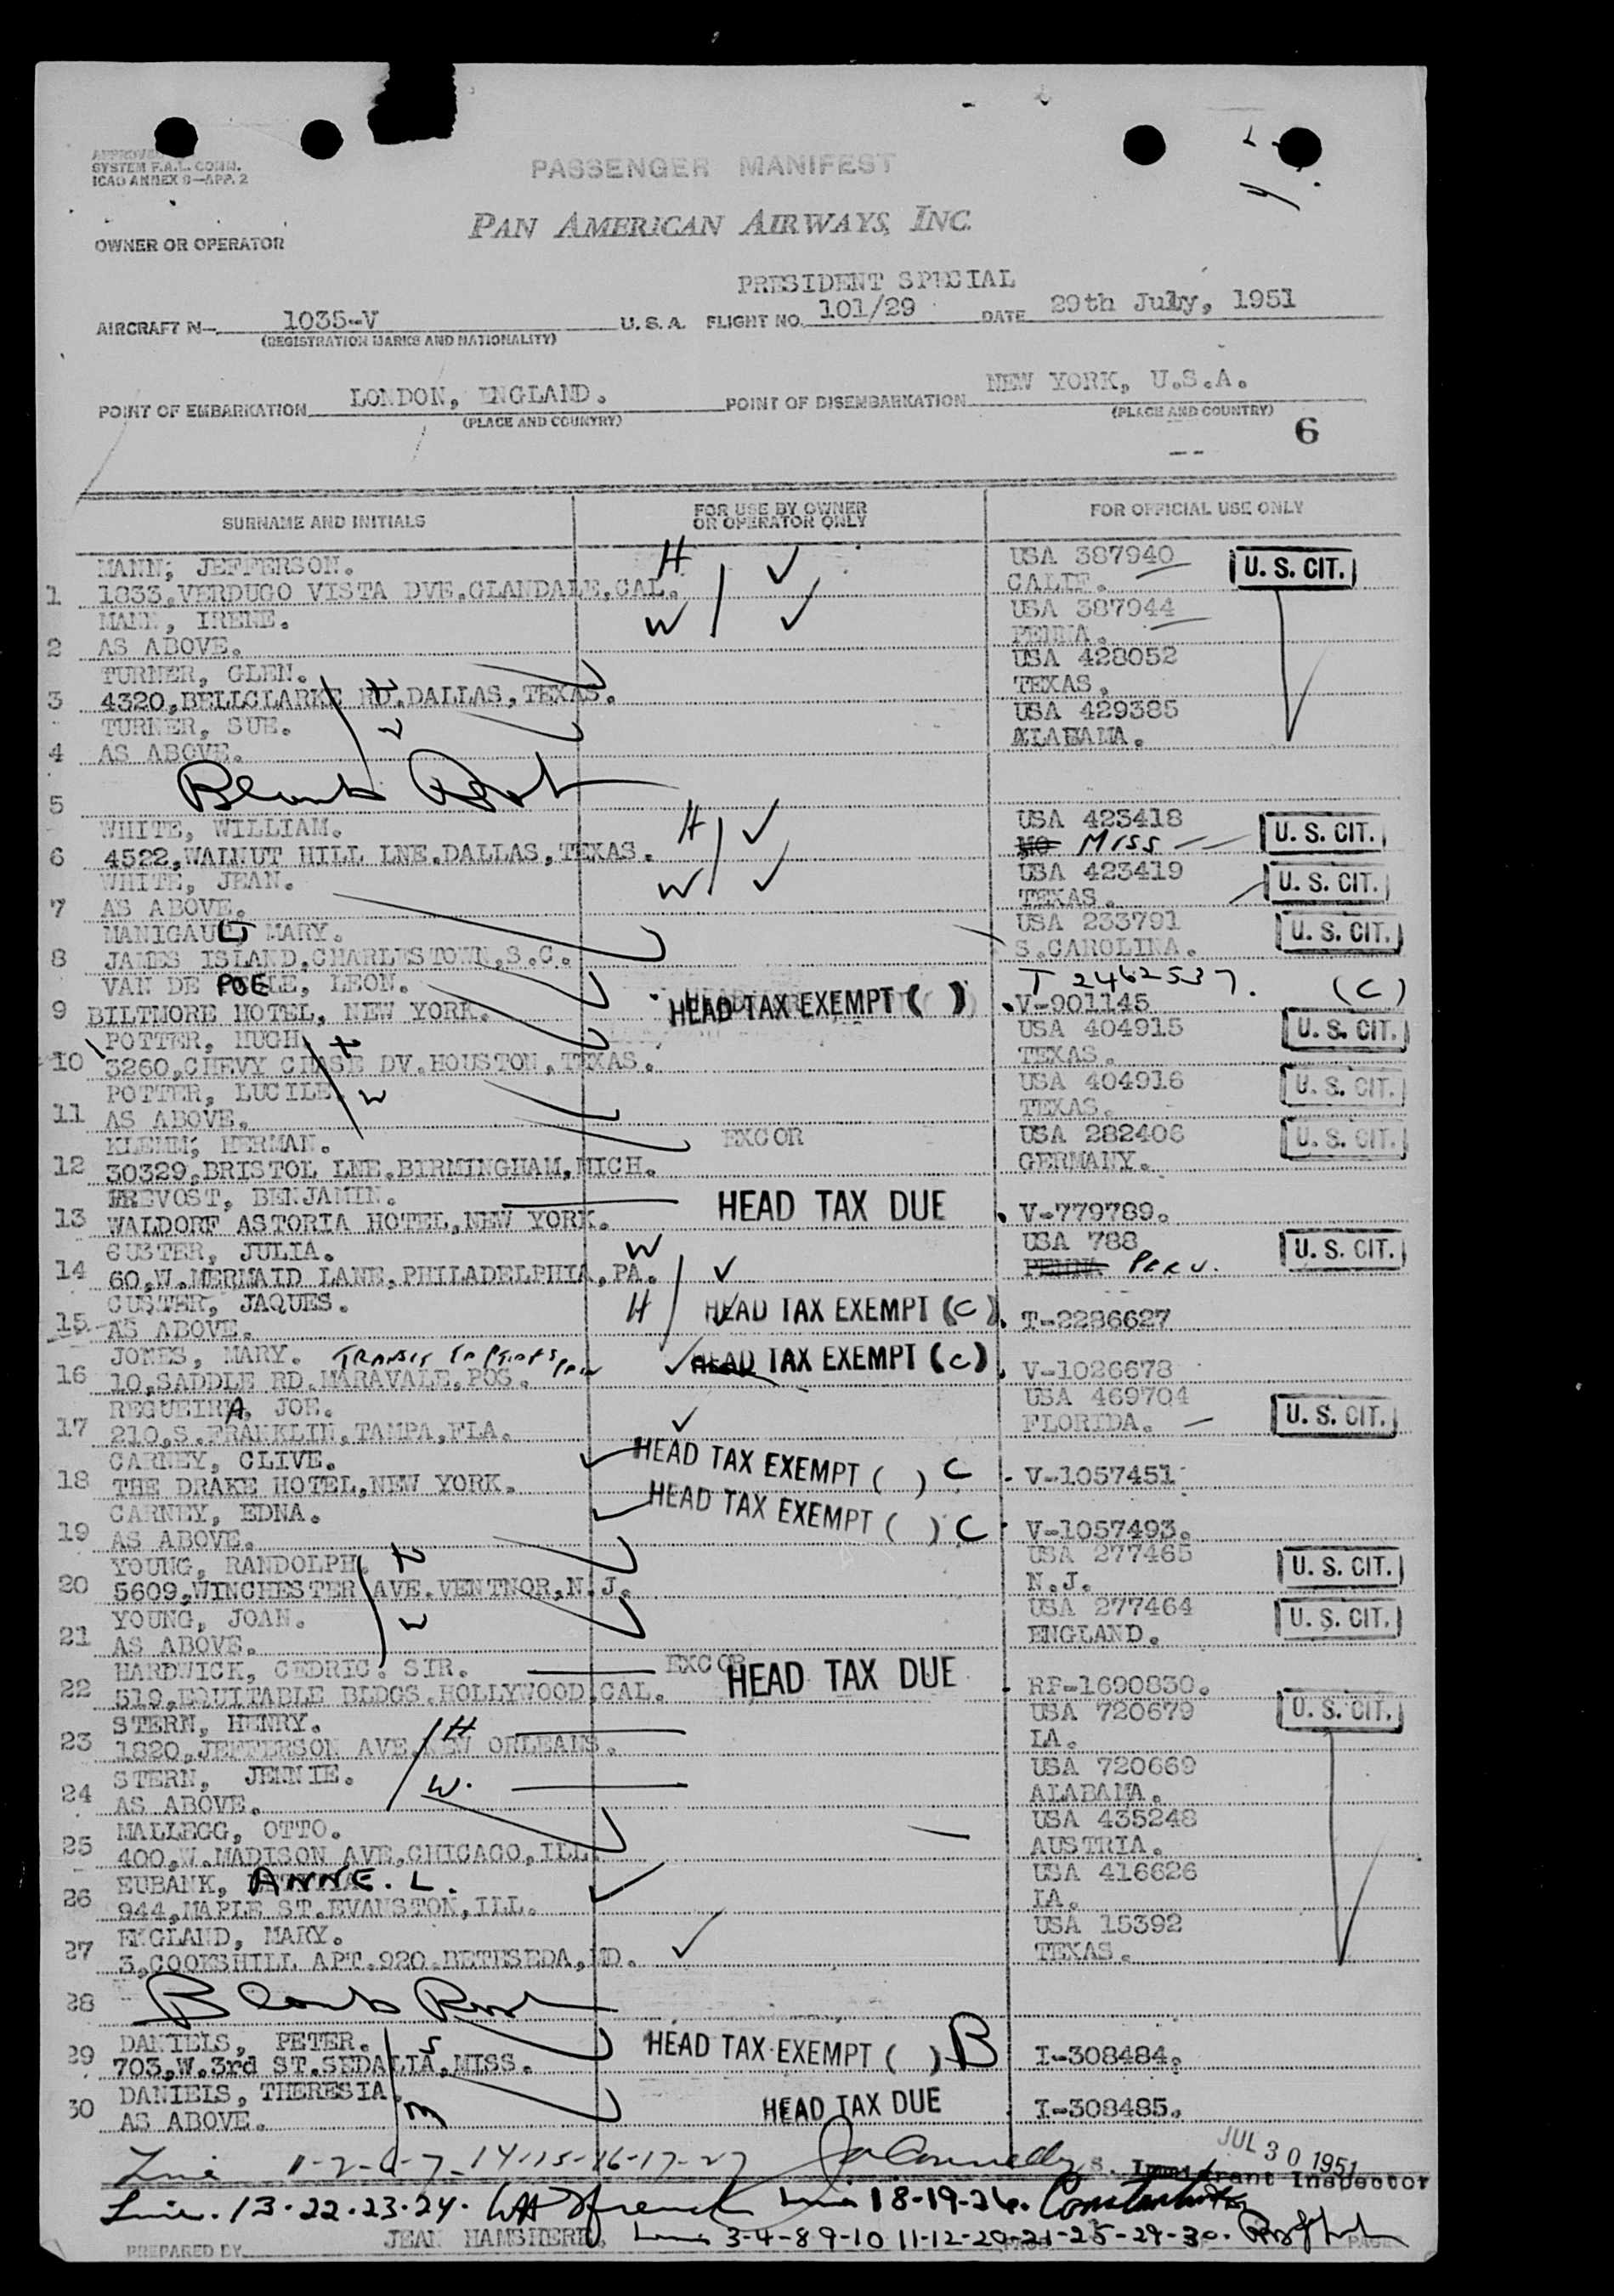 SYSTEM F.A.L. COMM.
ICAO ANNEX 9—APP. 2
PASSENGER MANIFEST
PAN AMERICAN AIRWAYS, INC.
OWNER OR OPERATOR
PRESIDENT SPECIAL
AIRCRAFT N— 1035-V U. S. A. FLIGHT NO. 101/29 DATE 29th July, 1951
(REGISTRATION MARKS AND NATIONALITY)
POINT OF EMBARKATION LONDON, ENGLAND. POINT OF DISEMBARKATION NEW YORK, U.S.A.
(PLACE AND COUNTRY) (PLACE AND COUNTRY)
6
SURNAME AND INITIALS FOR USE BY OWNER OR OPERATOR ONLY FOR OFFICIAL USE ONLY
MANN, JEFFERSON. H USA 387940 U. S. CIT.
1 1833,VERDUGO VISTA DVE.GLANDALE,CAL. CALIF.
MANN, IRENE. W USA 387944
2 AS ABOVE. PENNA.
TURNER, GLEN. USA 428052
3 4320,BELLCLARKE RD.DALLAS,TEXAS. TEXAS.
TURNER, SUE. W USA 429385
4 AS ABOVE. ALABAMA.
5 Blank
WHITE, WILLIAM. H USA 423418 U. S. CIT.
6 4522,WALNUT HILL LNE.DALLAS,TEXAS. MISS
WHITE, JEAN. W USA 423419 U. S. CIT.
7 AS ABOVE. TEXAS.
MANIGAULT MARY. USA 233791 U. S. CIT.
8 JAMES ISLAND,CHARLESTOWN,S.C. S.CAROLINA.
VAN DE POELE, LEON. T 2462537. (C)
9 BILTMORE HOTEL, NEW YORK. HEAD TAX EXEMPT ( ) V-901145
POTTER, HUGH USA 404915 U. S. CIT.
10 3260,CHEVY CHASE DV.HOUSTON,TEXAS. TEXAS.
POTTER, LUCILE. W USA 404916 U. S. CIT.
11 AS ABOVE. TEXAS.
KLEMM, HERMAN. EXCOR USA 282406 U. S. CIT.
12 30329,BRISTOL LNE.BIRMINGHAM,MICH. GERMANY.
PREVOST, BENJAMIN.
13 WALDORF ASTORIA HOTEL,NEW YORK. HEAD TAX DUE V-779789.
CUSTER, JULIA. W USA 788 U. S. CIT.
14 60,W.MERMAID LANE,PHILADELPHIA,PA. PENNA PERU.
CUSTER, JAQUES. H HEAD TAX EXEMPT (C) T-2286627
15 AS ABOVE.
JONES, MARY. TRANSIT HEAD TAX EXEMPT (C) V-1026678
16 10,SADDLE RD.MARAVALE,POS.
REGUEIRA, JOE. USA 469704 U. S. CIT.
17 210,S.FRANKLIN,TAMPA,FLA. FLORIDA.
CARNEY, CLIVE. HEAD TAX EXEMPT ( ) C V-1057451
18 THE DRAKE HOTEL,NEW YORK.
CARNEY, EDNA. HEAD TAX EXEMPT ( ) C V-1057493.
19 AS ABOVE.
YOUNG, RANDOLPH. USA 277465 U. S. CIT.
20 5609,WINCHESTER AVE.VENTNOR,N.J. N.J.
YOUNG, JOAN. W USA 277464 U. S. CIT.
21 AS ABOVE. ENGLAND.
HARDWICK, CEDRIC. SIR. EXCOR HEAD TAX DUE
22 510,EQUITABLE BLDGS.HOLLYWOOD,CAL. RP-1690830.
STERN, HENRY. H USA 720679 U. S. CIT.
23 1820,JEFFERSON AVE.NEW ORLEANS. LA.
STERN, JENNIE. W. USA 720669
24 AS ABOVE. ALABAMA.
MALLEGG, OTTO. USA 435248
25 400,W.MADISON AVE,CHICAGO,ILL. AUSTRIA.
EUBANK, ANNE. L. USA 416626
26 944,MAPLE ST.EVANSTON,ILL. IA.
ENGLAND, MARY. USA 15392
27 3,COOKSHILL APT.920.BETHESDA,MD. TEXAS.
28 Blank
DANIELS, PETER. S HEAD TAX EXEMPT ( ) B I-308484.
29 703,W.3rd ST.SEDALIA,MISS.
DANIELS, THERESIA. M HEAD TAX DUE I-308485.
30 AS ABOVE.
JUL 30 1951
Line 1-2-6-7-14-15-16-17-27 Immigrant Inspector
Line. 13-22-23-24. Line 18-19-26.
JEAN HAMSHERE, Line 3-4-8 9-10 11-12-20-21-25-29-30.
PREPARED BY PAGE